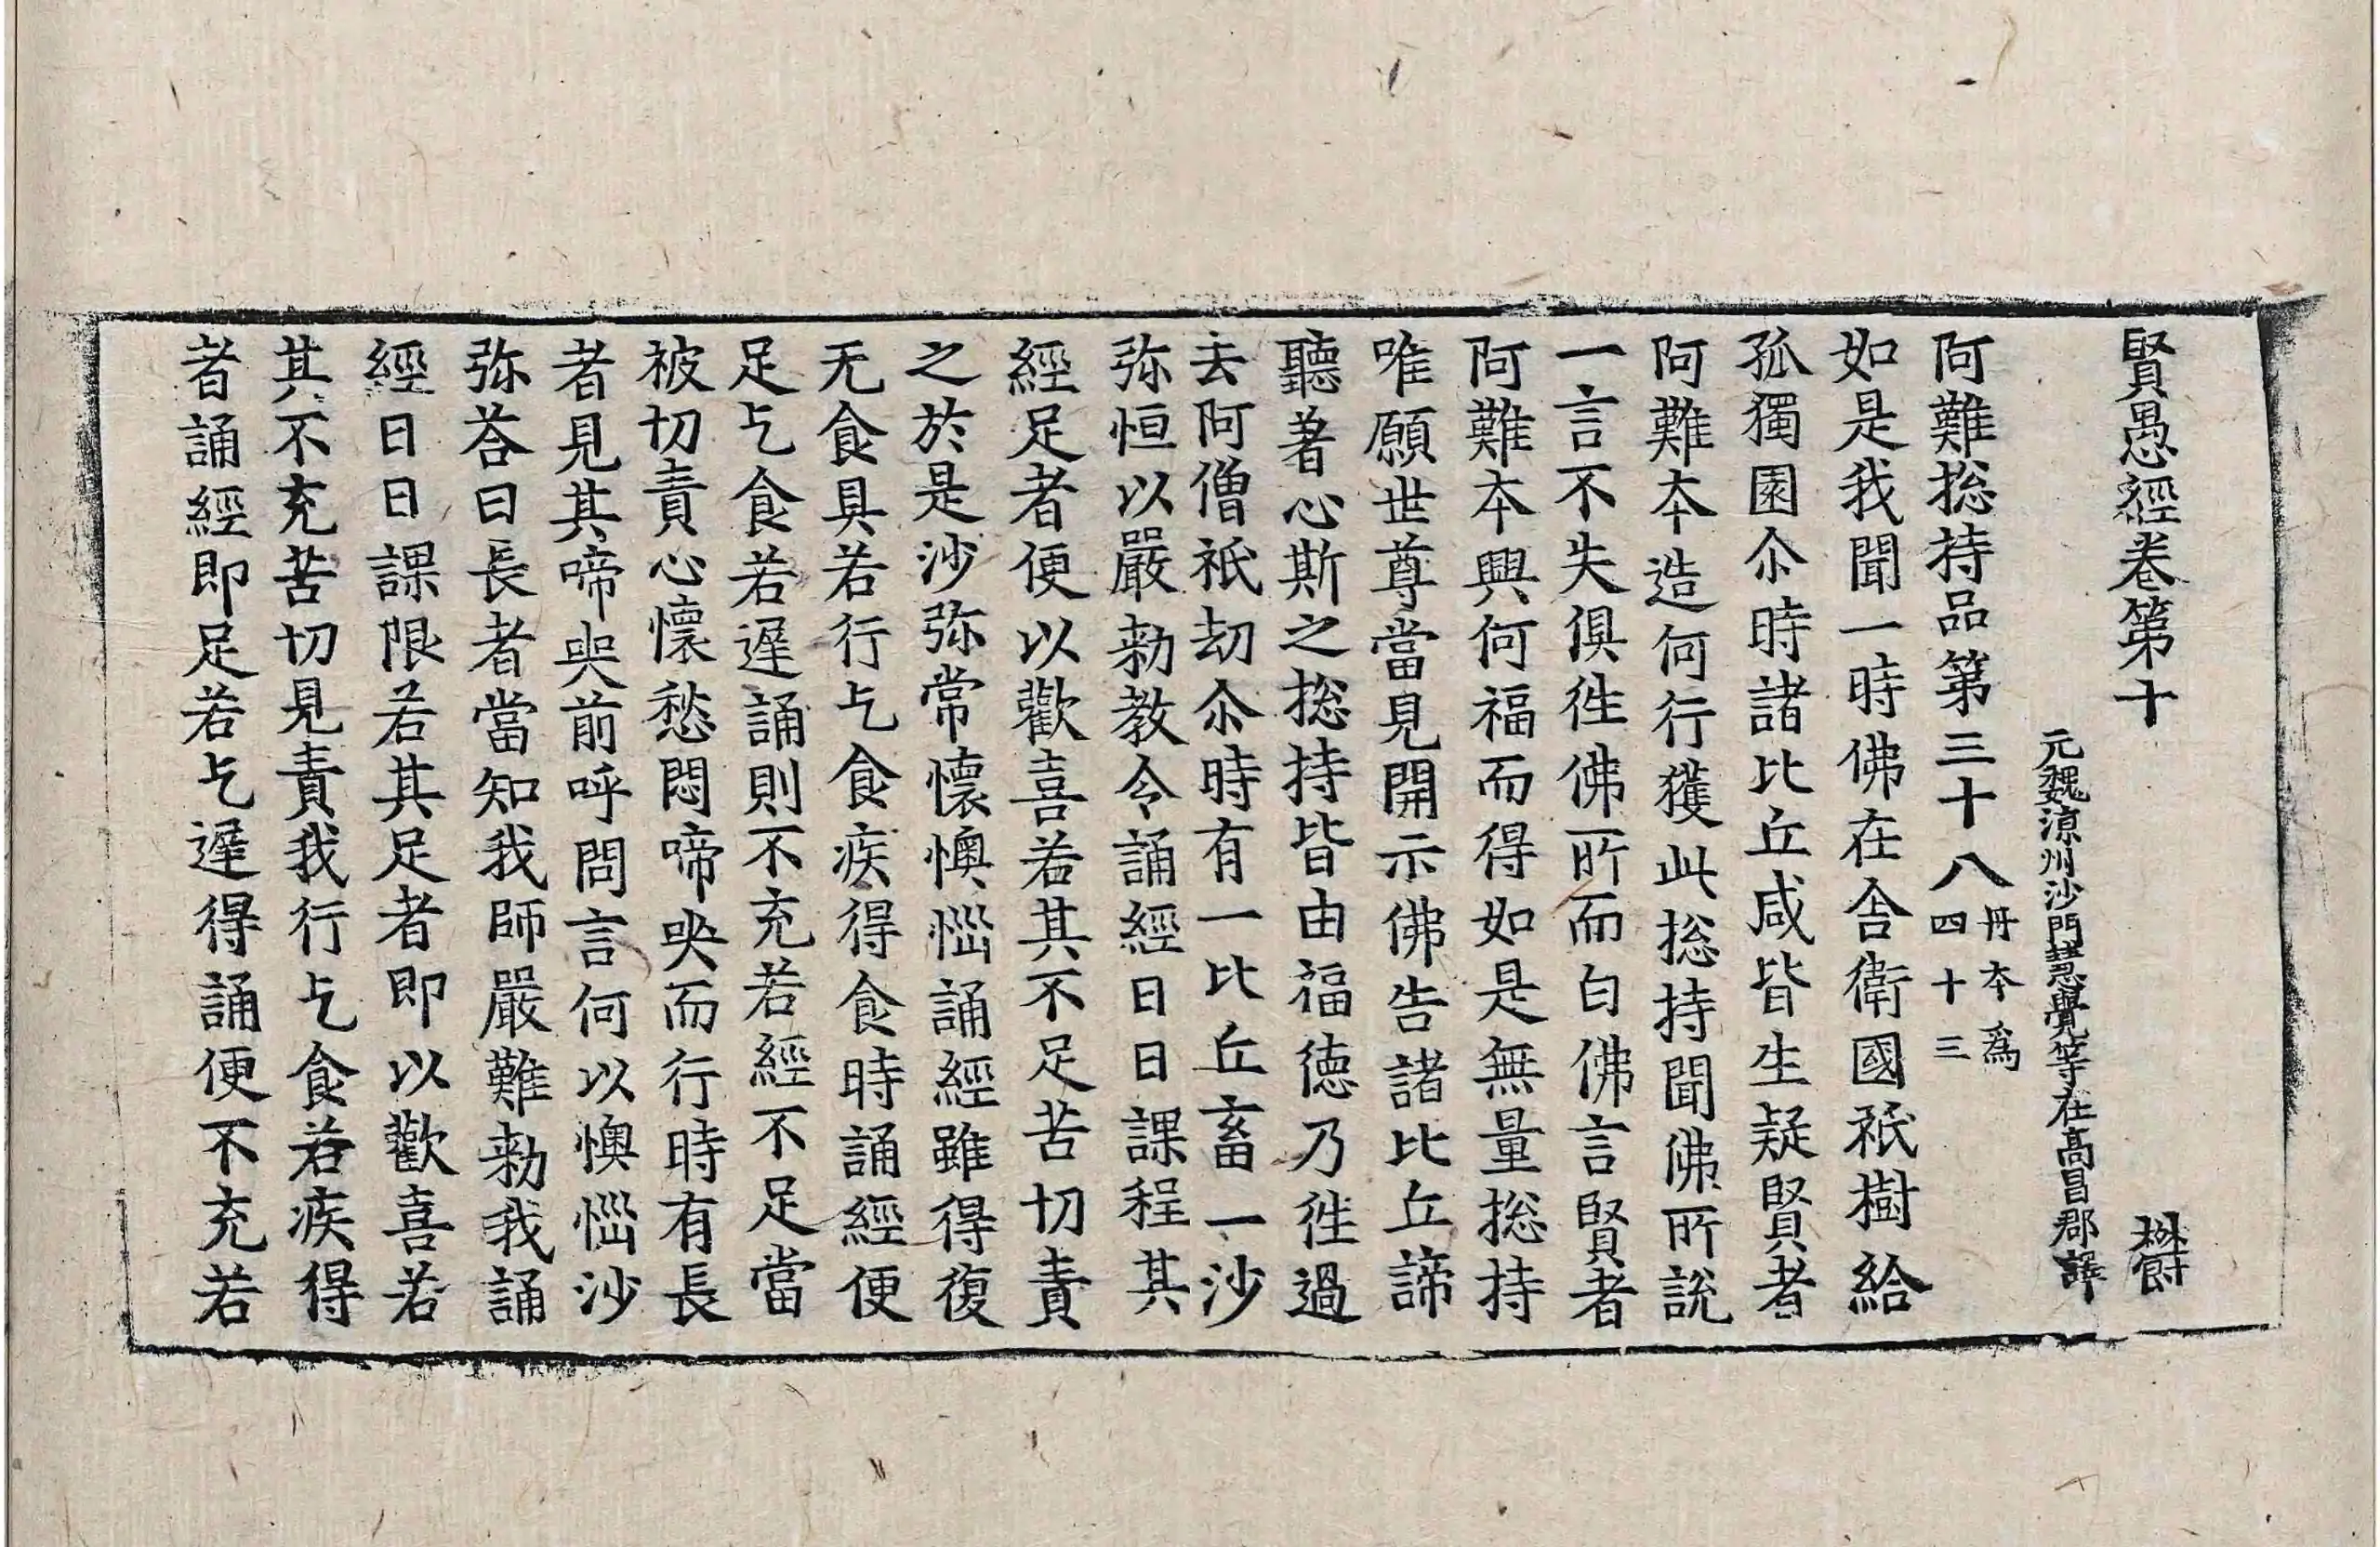 賢愚經卷第十 欝
元魏涼州沙門慧覺等在高昌郡譯
阿難揔持品第三十八丹本爲四十三
如是我聞一時佛在舍衛國祇樹給
孤獨園尒時諸比丘咸皆生疑賢者
阿難本造何行獲此揔持聞佛所說
一言不失俱徃佛所而白佛言賢者
阿難本興何福而得如是無量揔持
唯願世尊當見開示佛告諸比丘諦
聽著心斯之揔持皆由福德乃徃過
去阿僧祇劫尒時有一比丘畜一沙
弥恒以嚴勑教令誦經日日課程其
經足者便以歡喜若其不足苦切責
之於是沙弥常懷懊惱誦經雖得復
无食具若行乞食疾得食時誦經便
足乞食若遲誦則不充若經不足當
被切責心懷愁悶啼哭而行時有長
者見其啼哭前呼問言何以懊惱沙
弥荅曰長者當知我師嚴難勑我誦
經日日課限若其足者即以歡喜若
其不充苦切見責我行乞食若疾得
者誦經即足若乞遲得誦便不充若